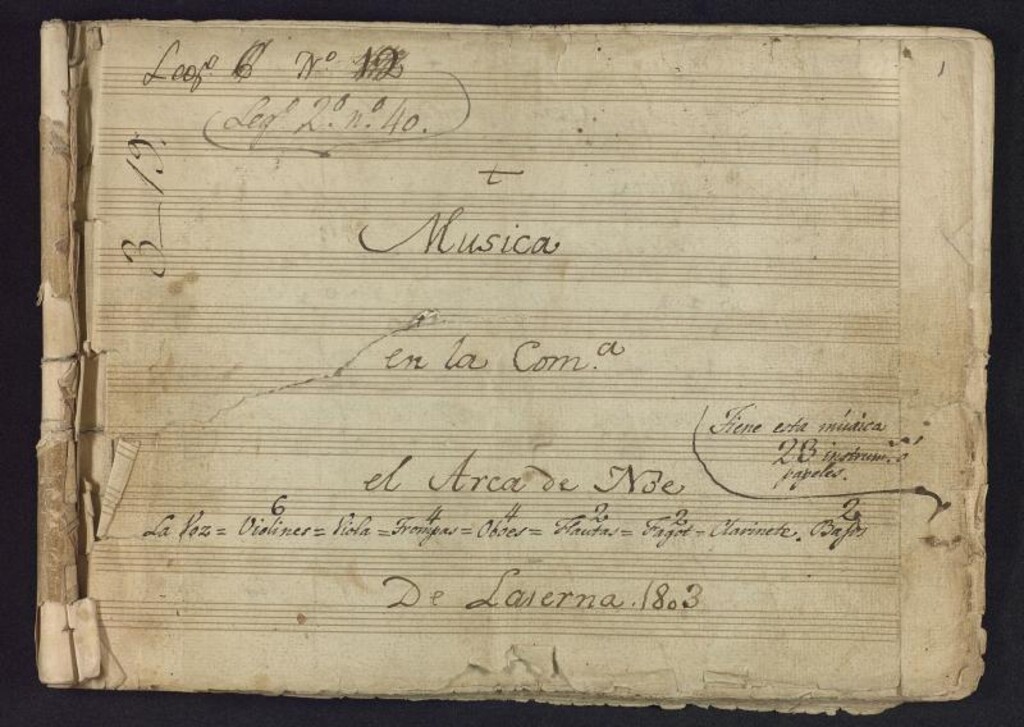 Leg.º 6 Nº 12
Leg.º 2.º n.º 40.
1
3-19.
Musica
en la Com.ª
Tiene esta música
23 instrum.s ó
papeles.
el Arca de Noe
6 4 4 2 2 2
La Voz = Violines = Viola = Trompas = Oboes = Flautas = Fagot = Clarinete. Bajos
De Laserna. 1803